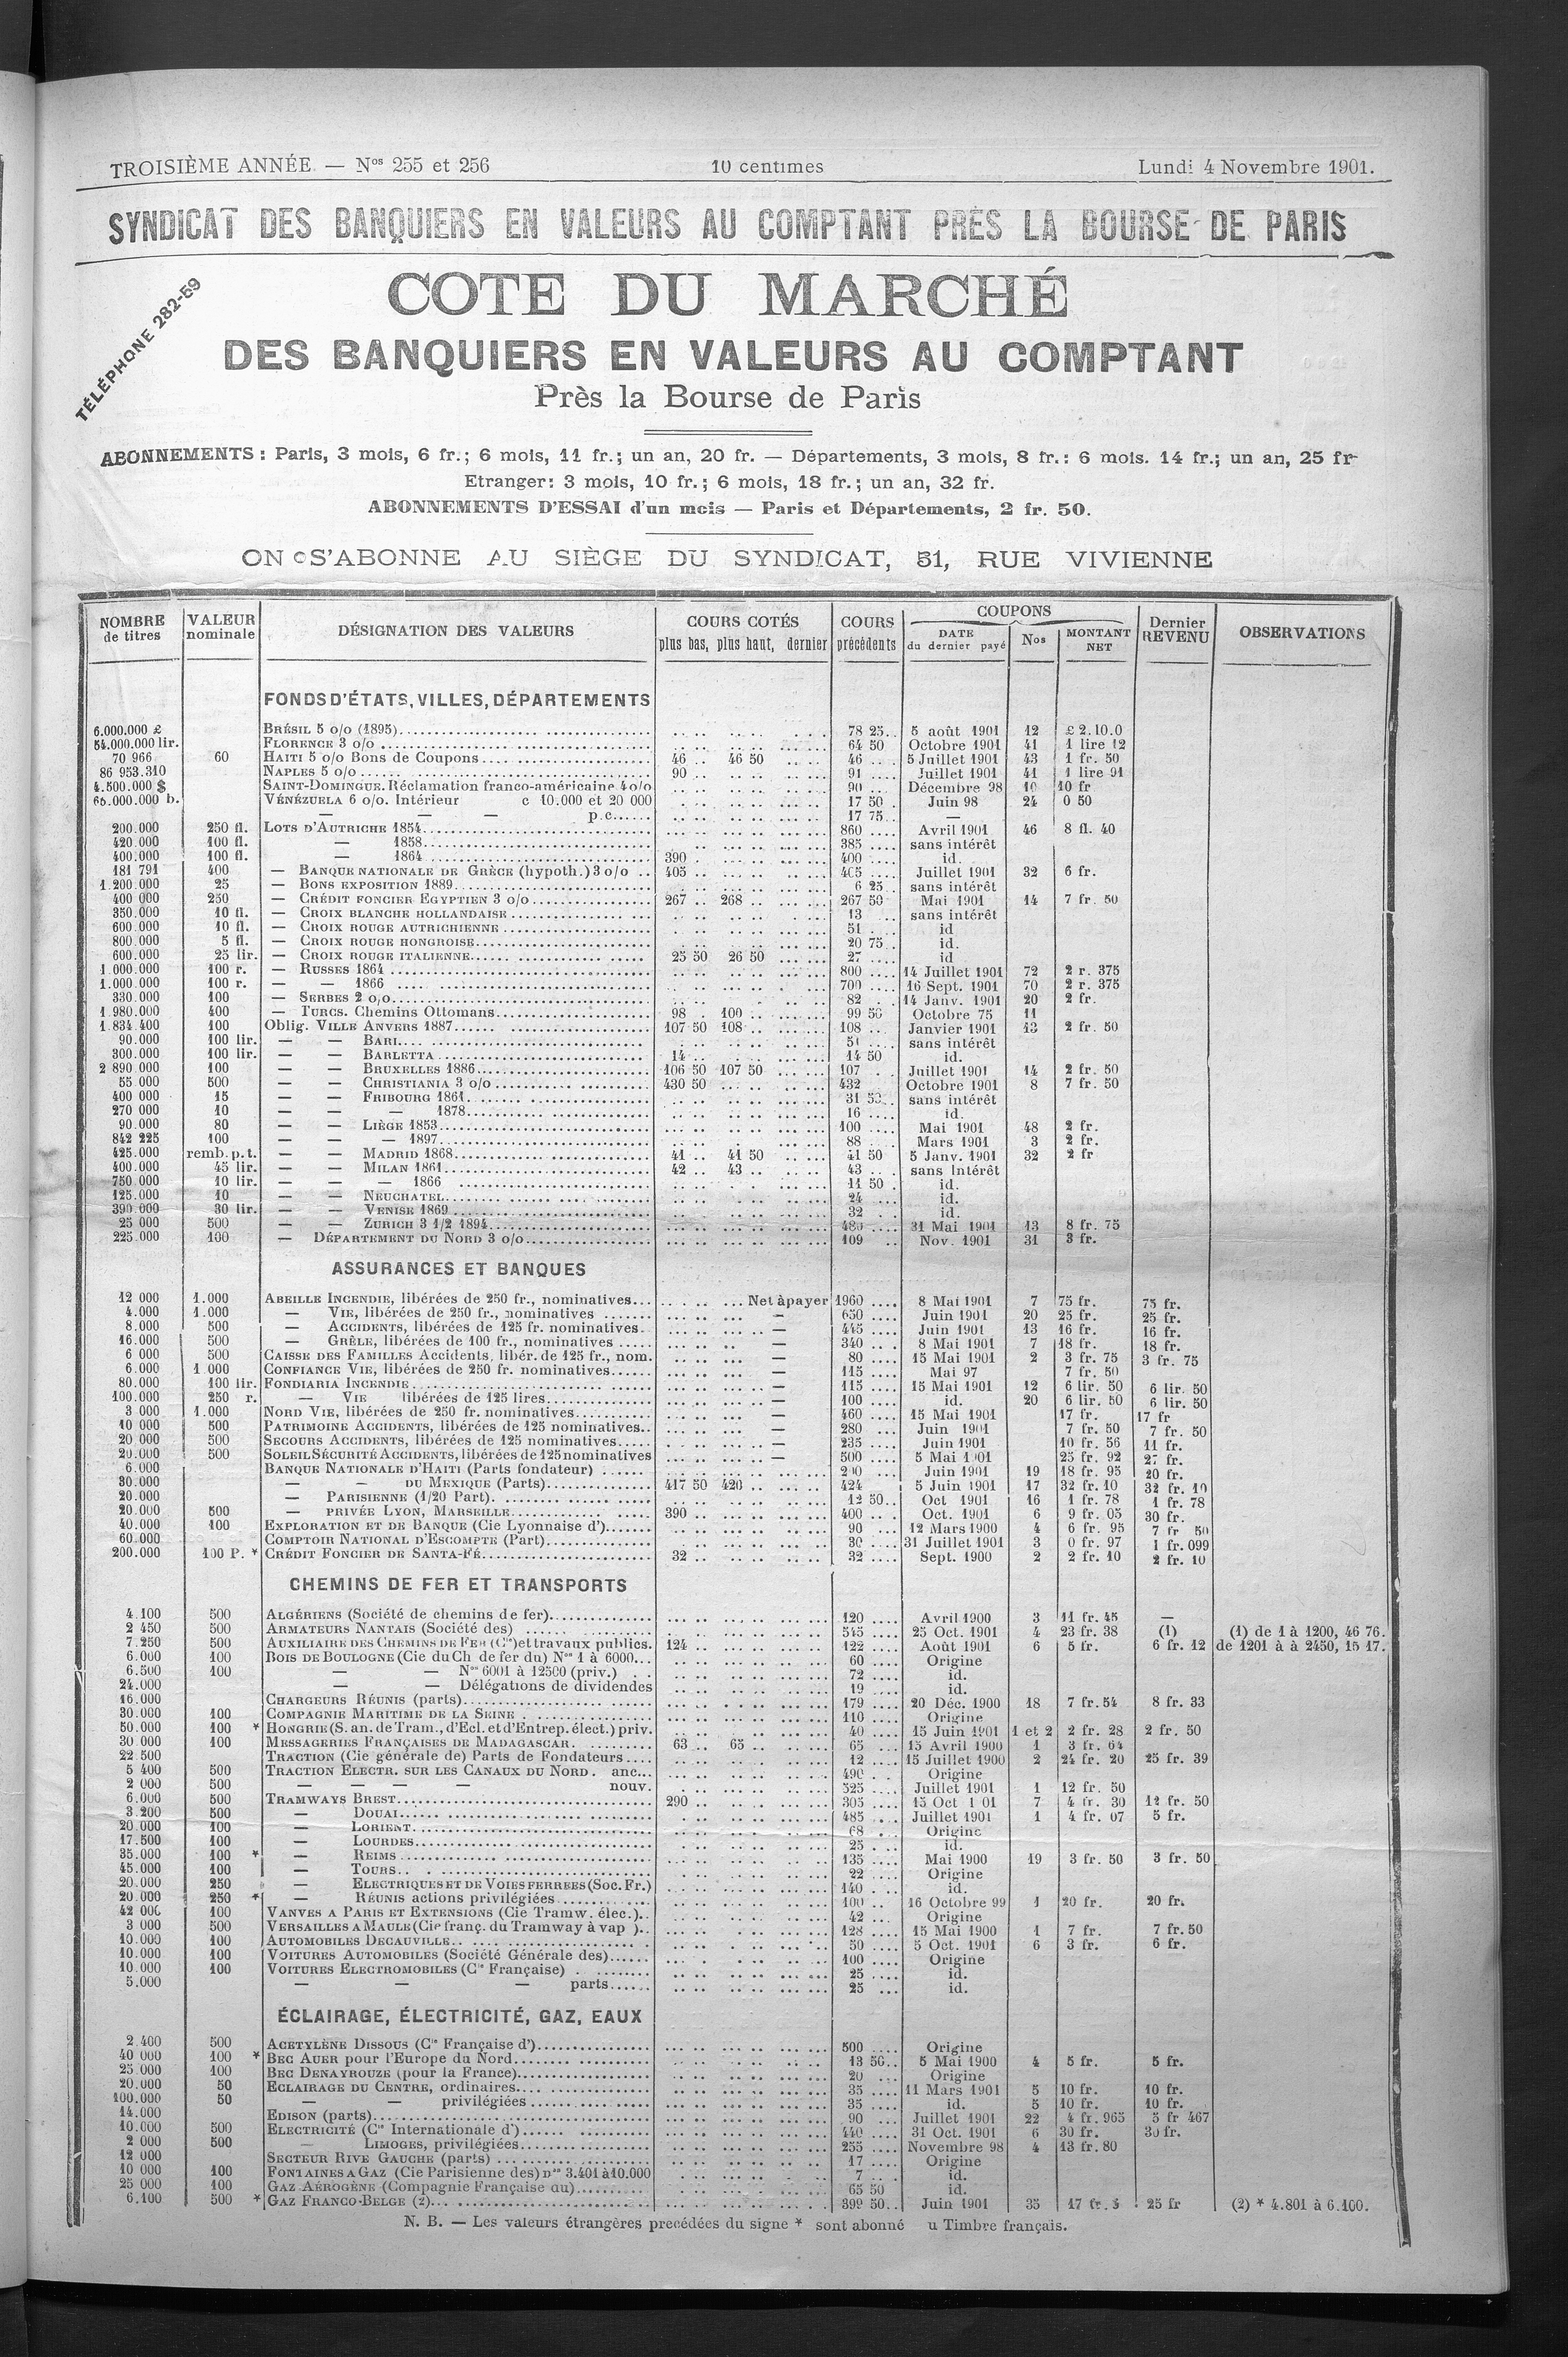 TROISIÈME ANNÉE. — Nos 255 et 256 10 centimes Lundi 4 Novembre 1901.
SYNDICAT DES BANQUIERS EN VALEURS AU COMPTANT PRÈS LA BOURSE DE PARIS
TÉLÉPHONE 282-59
COTE DU MARCHÉ
DES BANQUIERS EN VALEURS AU COMPTANT
Près la Bourse de Paris
ABONNEMENTS : Paris, 3 mois, 6 fr.; 6 mois, 11 fr.; un an, 20 fr. — Départements, 3 mois, 8 fr.: 6 mois. 14 fr.; un an, 25 fr-
Etranger: 3 mois, 10 fr.; 6 mois, 18 fr.; un an, 32 fr.
ABONNEMENTS D'ESSAI d'un mois — Paris et Départements, 2 fr. 50.
ON S'ABONNE AU SIÈGE DU SYNDICAT, 51, RUE VIVIENNE
NOMBRE de titres VALEUR nominale DÉSIGNATION DES VALEURS COURS COTÉS plus bas, plus haut, dernier COURS précédents COUPONS DATE du dernier payé Nos MONTANT NET Dernier REVENU OBSERVATIONS
FONDS D'ÉTATS, VILLES, DÉPARTEMENTS
6.000.000 £ BRÉSIL 5 o/o (1895) 78 25 5 août 1901 12 £ 2.10.0
54.000.000 lir. FLORENCE 3 o/o 64 50 Octobre 1901 41 1 lire 12
70 966 60 HAITI 5 o/o Bons de Coupons 46 46 50 46 5 Juillet 1901 43 1 fr. 50
86 953.310 NAPLES 5 o/o 90 91 Juillet 1901 41 1 lire 91
4.500.000 $ SAINT-DOMINGUE. Réclamation franco-américaine 4 o/o 90 Décembre 98 10 10 fr
60.000.000 b. VÉNÉZUELA 6 o/o. Intérieur c 10.000 et 20 000 17 50 Juin 98 24 0 50
— — — p.c. 17 75 —
200.000 250 fl. LOTS D'AUTRICHE 1854 860 Avril 1901 46 8 fl. 40
420.000 100 fl. — 1858 385 sans intérêt
400.000 100 fl. — 1864 390 400 id.
181 791 400 — BANQUE NATIONALE DE GRÈCE (hypoth.) 3 o/o 405 405 Juillet 1901 32 6 fr.
1.200.000 25 — BONS EXPOSITION 1889 6 25 sans intérêt
400 000 250 — CRÉDIT FONCIER EGYPTIEN 3 o/o 267 268 267 50 Mai 1901 14 7 fr. 50
350.000 10 fl. — CROIX BLANCHE HOLLANDAISE 13 sans intérêt
600.000 10 fl. — CROIX ROUGE AUTRICHIENNE 51 id
800.000 5 fl. — CROIX ROUGE HONGROISE 20 75 id.
600.000 25 lir. — CROIX ROUGE ITALIENNE 25 50 26 50 27 id
1.000.000 100 r. — RUSSES 1864 800 14 Juillet 1901 72 2 r. 375
1.000.000 100 r. — — 1866 700 16 Sept. 1901 70 2 r. 375
330.000 100 — SERBES 2 o/o 82 14 Janv. 1901 20 2 fr.
1.980.000 400 — TURCS. Chemins Ottomans 98 100 99 50 Octobre 75 11
1.834.400 100 Oblig. VILLE ANVERS 1887 107 50 108 108 Janvier 1901 13 2 fr. 50
90.000 100 lir. — — BARI 51 sans intérêt
300.000 100 lir. — — BARLETTA 14 14 50 id.
2 890 000 100 — — BRUXELLES 1886 106 50 107 50 107 Juillet 1901 14 2 fr. 50
55 000 500 — — CHRISTIANIA 3 o/o 430 50 432 Octobre 1901 8 7 fr. 50
400 000 15 — — FRIBOURG 1861 31 50 sans intérêt
270 000 10 — — — 1878 16 id.
90.000 80 — — LIÈGE 1853 100 Mai 1901 48 2 fr.
842 225 100 — — — 1897 88 Mars 1901 3 2 fr.
425.000 remb. p. t. — — MADRID 1868 41 41 50 41 50 5 Janv. 1901 32 2 fr
400.000 45 lir. — — MILAN 1861 42 43 43 sans Intérêt
750 000 10 lir. — — — 1866 11 50 id.
125.000 10 — — NEUCHATEL 24 id.
390 000 30 lir. — — VENISE 1869 32 id.
25 000 500 — — ZURICH 3 1/2 1894 480 31 Mai 1901 13 8 fr. 75
225.000 100 — DÉPARTEMENT DU NORD 3 o/o 109 Nov. 1901 31 3 fr.
ASSURANCES ET BANQUES
12 000 1.000 ABEILLE INCENDIE, libérées de 250 fr., nominatives Net à payer 1960 8 Mai 1901 7 75 fr. 75 fr.
4.000 1.000 — VIE, libérées de 250 fr., nominatives — 650 Juin 1901 20 25 fr. 25 fr.
8.000 500 — ACCIDENTS, libérées de 125 fr. nominatives. — 445 Juin 1901 13 16 fr. 16 fr.
16.000 500 — GRÊLE, libérées de 100 fr., nominatives — 340 8 Mai 1901 7 18 fr. 18 fr.
6 000 500 CAISSE DES FAMILLES Accidents, libér. de 125 fr., nom. — 80 15 Mai 1901 2 3 fr. 75 3 fr. 75
6.000 1 000 CONFIANCE VIE, libérées de 250 fr. nominatives — 115 Mai 97 7 fr. 50
80.000 100 lir. FONDIARIA INCENDIE — 115 15 Mai 1901 12 6 lir. 50 6 lir. 50
100.000 250 r. — VIE libérées de 125 lires — 100 id. 20 6 lir. 50 6 lir. 50
3 000 1.000 NORD VIE, libérées de 250 fr. nominatives — 460 15 Mai 1901 17 fr. 17 fr
10 000 500 PATRIMOINE ACCIDENTS, libérées de 125 nominatives — 280 Juin 1901 7 fr. 50 7 fr. 50
20 000 500 SECOURS ACCIDENTS, libérées de 125 nominatives — 235 Juin 1901 10 fr. 56 11 fr.
20.000 500 SOLEIL SÉCURITÉ ACCIDENTS, libérées de 125 nominatives — 500 5 Mai 1901 25 fr. 92 27 fr.
6.000 BANQUE NATIONALE D'HAITI (Parts fondateur) 200 Juin 1901 19 18 fr. 95 20 fr.
80.000 — DU MEXIQUE (Parts) 417 50 420 424 5 Juin 1901 17 32 fr. 10 32 fr. 10
20.000 — PARISIENNE (1/20 Part) 12 50 Oct 1901 16 1 fr. 78 1 fr. 78
20.000 500 — PRIVÉE LYON, MARSEILLE 390 400 Oct. 1901 6 9 fr. 05 30 fr.
40.000 100 EXPLORATION ET DE BANQUE (Cie Lyonnaise d') 90 12 Mars 1900 4 6 fr. 95 7 fr 50
60.000 COMPTOIR NATIONAL D'ESCOMPTE (Part) 30 31 Juillet 1901 3 0 fr. 97 1 fr. 099
200.000 100 P. * CRÉDIT FONCIER DE SANTA-FÉ 32 32 Sept. 1900 2 2 fr. 10 2 fr. 10
CHEMINS DE FER ET TRANSPORTS
4.100 500 ALGÉRIENS (Société de chemins de fer) 120 Avril 1900 3 11 fr. 45 —
2 450 500 ARMATEURS NANTAIS (Société des) 545 25 Oct. 1901 4 23 fr. 38 (1) (1) de 1 à 1200, 46 76.
7.250 500 AUXILIAIRE DES CHEMINS DE FER (Cie) et travaux publics. 124 122 Août 1901 6 5 fr. 6 fr. 12 de 1201 à à 2450, 15 17.
6.000 100 BOIS DE BOULOGNE (Cie du Ch de fer du) Nos 1 à 6000 60 Origine
6.500 100 — — Nos 6001 à 12500 (priv.) 72 id.
24.000 — — Délégations de dividendes 19 id.
16.000 CHARGEURS RÉUNIS (parts) 179 20 Déc. 1900 18 7 fr. 54 8 fr. 33
30.000 100 COMPAGNIE MARITIME DE LA SEINE 110 Origine
50.000 100 * HONGRIE (S. an. de Tram., d'Ecl. et d'Entrep. élect.) priv. 40 15 Juin 1901 1 et 2 2 fr. 28 2 fr. 50
30.000 100 MESSAGERIES FRANÇAISES DE MADAGASCAR 63 65 65 15 Avril 1900 1 3 fr. 64
22.500 TRACTION (Cie générale de) Parts de Fondateurs 12 15 Juillet 1900 2 24 fr. 20 25 fr. 39
5 400 500 TRACTION ELECTR. SUR LES CANAUX DU NORD. anc. 490 Origine
2 000 500 — — — — nouv. 525 Juillet 1901 1 12 fr. 50
6.000 500 TRAMWAYS BREST 290 305 15 Oct 1 01 7 4 fr. 30 12 fr. 50
3.200 500 — DOUAI 485 Juillet 1901 1 4 fr. 07 5 fr.
20.000 100 — LORIENT 68 Origine
17.500 100 — LOURDES 25 id.
35.000 100 * — REIMS 135 Mai 1900 19 3 fr. 50 3 fr. 50
45.000 100 — TOURS 22 Origine
20.000 250 — ELECTRIQUES ET DE VOIES FERREES (Soc. Fr.) 140 id.
20.000 250 * — RÉUNIS actions privilégiées 100 16 Octobre 99 1 20 fr. 20 fr.
42 000 100 VANVES A PARIS ET EXTENSIONS (Cie Tramw. élec.) 42 Origine
3 000 500 VERSAILLES A MAULE (Cie franç. du Tramway à vap ) 128 15 Mai 1900 1 7 fr. 7 fr. 50
10.000 100 AUTOMOBILES DECAUVILLE 50 5 Oct. 1901 6 3 fr. 6 fr.
10.000 100 VOITURES AUTOMOBILES (Société Générale des) 100 Origine
10.000 100 VOITURES ELECTROMOBILES (Cie Française) 25 id.
5.000 — — — parts 25 id.
ÉCLAIRAGE, ÉLECTRICITÉ, GAZ, EAUX
2.400 500 ACETYLÈNE DISSOUS (Cie Française d') 500 Origine
40 000 100 * BEC AUER pour l'Europe du Nord 13 50 5 Mai 1900 4 5 fr. 5 fr.
25 000 100 BEC DENAYROUZE (pour la France) 20 Origine
20.000 50 ECLAIRAGE DU CENTRE, ordinaires 35 11 Mars 1901 5 10 fr. 10 fr.
100.000 50 — — privilégiées 35 id. 5 10 fr. 10 fr.
14.000 EDISON (parts) 90 Juillet 1901 22 4 fr. 965 5 fr 467
10.000 500 ELECTRICITÉ (Cie Internationale d') 440 31 Oct. 1901 6 30 fr. 30 fr.
2 000 500 — LIMOGES, privilégiées 255 Novembre 98 4 13 fr. 80
12 000 SECTEUR RIVE GAUCHE (parts) 17 Origine
10 000 100 FONTAINES A GAZ (Cie Parisienne des) nos 3.401 à 10.000 7 id.
25 000 100 GAZ AÉROGÈNE (Compagnie Française du) 65 50 id.
6.100 500 * GAZ FRANCO-BELGE (2) 399 50 Juin 1901 35 17 fr. 25 fr (2) * 4.801 à 6.100.
N. B. — Les valeurs étrangères precédées du signe * sont abonné u Timbre français.